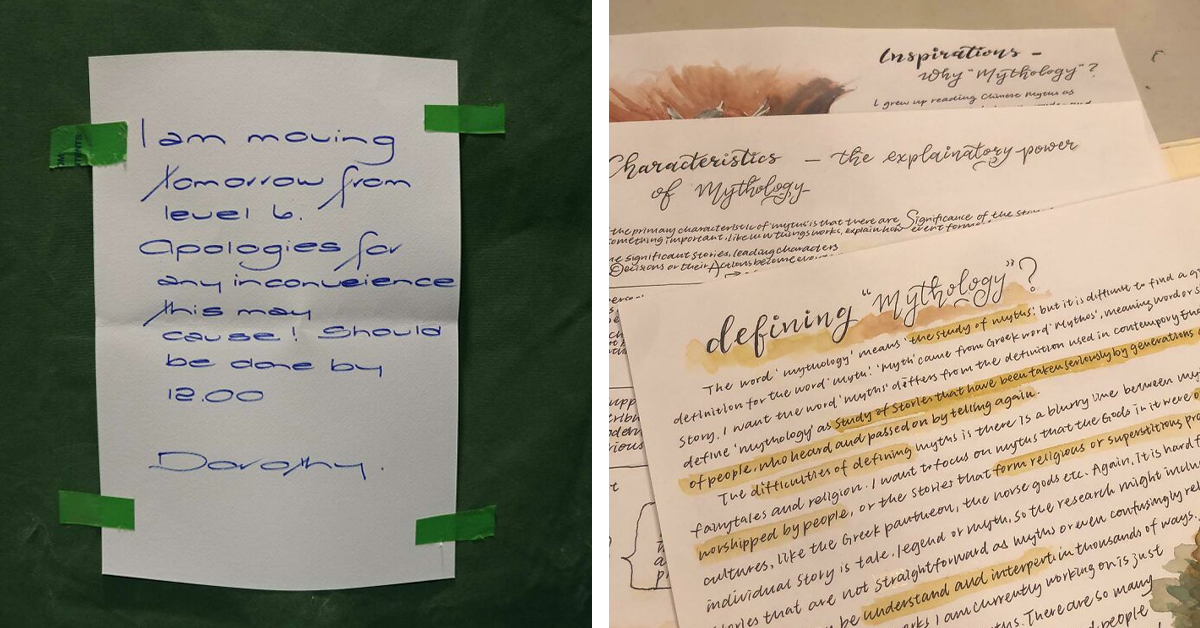 I am moving
tomorrow from
level 6.
Apologies for
any inconveience
this may
cause! Should
be done by
12.00
Dorothy.
Inspirations –
Why "Mythology"?
I grew up reading Chinese myths as
Characteristics – the explainatory power
of Mythology
the primary characteristic of myths is that there are Significance of the
something important, like how things works, explain how event
significant stories, leading characters
Decisions or their Actions become
defining "Mythology"?
The word 'mythology' means 'the study of myths', but it is difficult to find a
definition for the word 'myth'. 'Myth' came from Greek word 'Mythos', meaning word or
Story. I want the word 'myths' differs from the definition used in contempory
define 'mythology' as study of stories that have been taken seriously by generations
of people, who heard and passed on by telling again.
The difficulties of defining myths is there is a blurry line between
fairytales and religion. I want to focus on myths that the Gods in it were
worshipped by people, or the stories that form religious or superstitious
cultures, like the Greek pantheon, the norse gods etc. Again, it is hard
individual story is tale, legend or myth, so the research might
stories that are not straightforward as myths or even confusingly
be understand and interpert in thousands of ways.
I am currently working on is just
There are so many
people